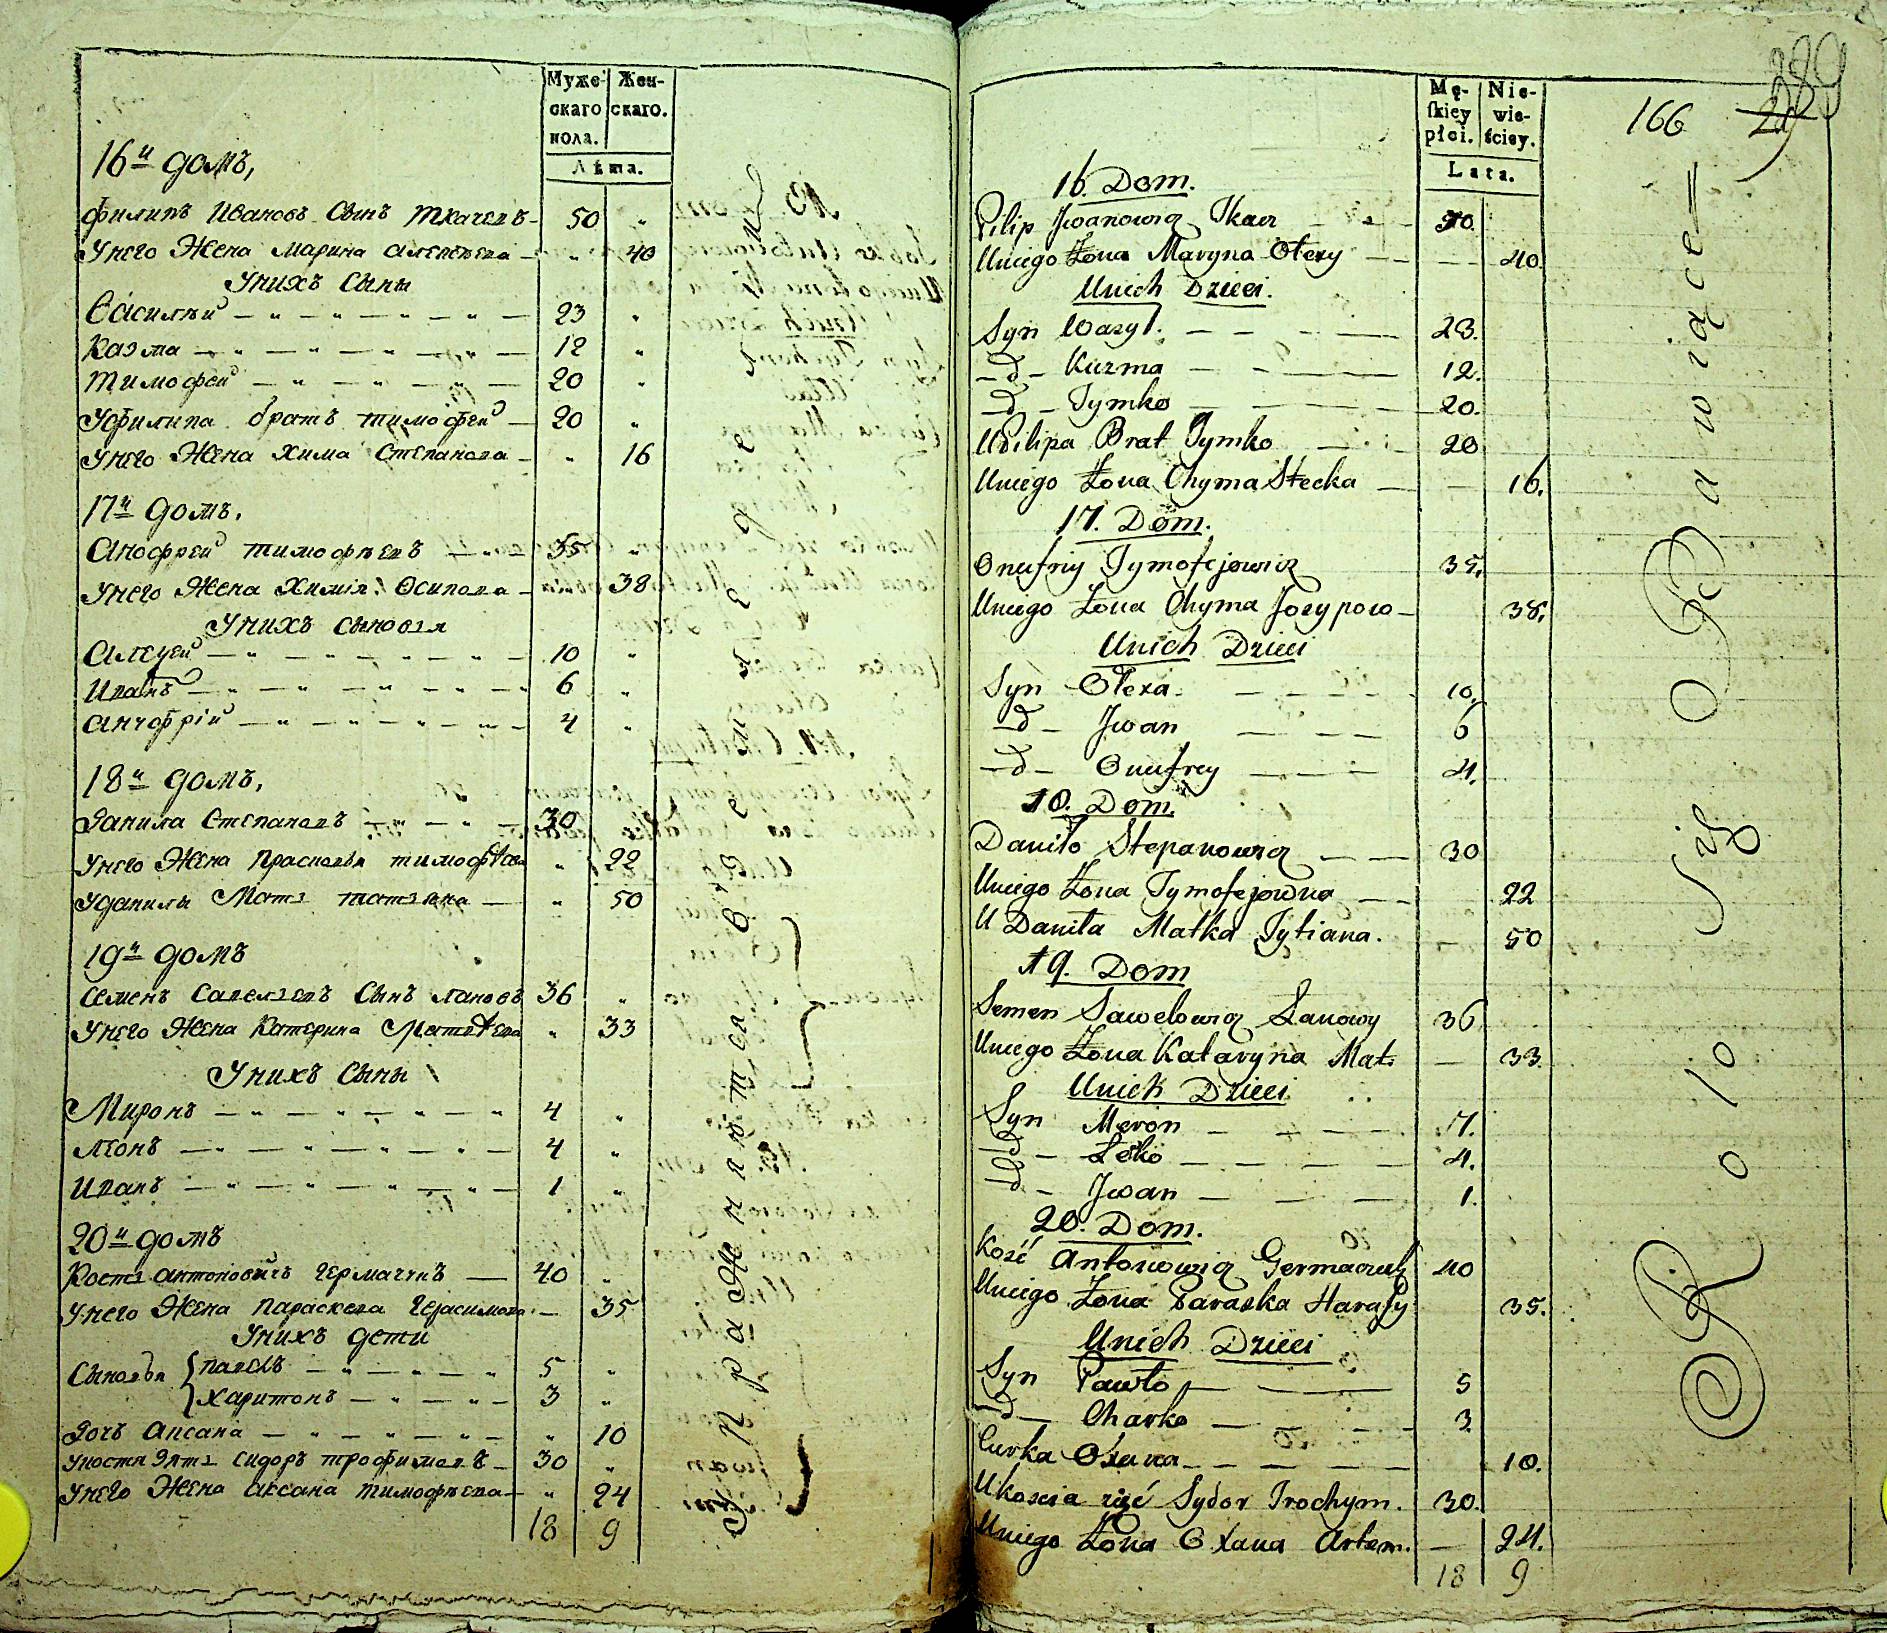 Муже-
скаго
пола.
Жен-
скаго.
Лѣта.
16й домъ,
Филипъ Ивановъ Сынъ Ткачевъ 50 "
Унего Жена Марина Алексѣева " 40
Унихъ Сыны
Василѣй 23 "
Казма 12 "
Тимофей 20 "
Уфилипа братъ тимофей 20 "
Унего Жена Хима Степанова " 16
17й домъ.
Анофрей тимофѣевъ 35 "
Унего Жена Химія Осипова 38
Унихъ сыновья
Алеѯей 10 "
Иванъ 6 "
Анчофрій 4 "
18й домъ.
Данила Степановъ 30
Унего Жена Прасковья тимофѣева " 22
Уданилы Мать татьяна " 50
19й домъ
Семенъ Савельевъ Сынъ лановъ 36 "
Унего Жена Катерина Матвѣева " 33
Унихъ Сыны
Миронъ 4 "
Леонъ 4 "
Иванъ 1 "
20й домъ
Костя антоновичъ Чермачикъ 40 "
Унего Жена Параскева Герасимова 35
Унихъ дети
Сыновья павелъ 5 "
харитонъ 3 "
Дочь Аксана " 10
Укостя Зять сидоръ трофимовъ 30 "
Унего Жена аксана тимофѣева " 24
18 9
Упражняются в земледелии
Mę-
skiey
płci.
Nie-
wie-
ściey.
Lata.
166
289
16. Dom.
Pilip Jwanowicz Tkacz 50.
Uniego Żona Maryna Olexy 40.
Unich Dzieci.
Syn Wasyl. 23.
-d- Kuzma 12.
-d- Tymko 20.
U Pilipa Brat Tymko 20
Uniego Żona Chyma Stecka 16.
17. Dom.
Onufriy Tymofejowicz 35.
Uniego Żona Chyma Jozypow 38.
Unich Dzieci
Syn Olexa 10.
-d- Jwan 6
-d- Onufrey 4.
18. Dom.
Daniło Stepanowicz 30
Uniego Żona Tymofejowna 22
U Daniła Matka Tytiana. 50
19. Dom
Semen Sawelowicz Łanowy 36
Uniego Żona Kataryna Mat. 33.
Unich Dzieci
Syn Meron 4.
-d- Leśko 4.
-d- Jwan 1.
20. Dom.
Kość Antonowicz Germaczuk 40
Uniego Żona Paraska Harasy 35.
Unich Dzieci
Syn Pawło 5
-d- Charko 3.
Curka Oxana 10.
U Koscia zięć Sydor Trochym. 30.
Uniego Żona Oxana Artem. 24.
18 9
Rolo Się Bawiące